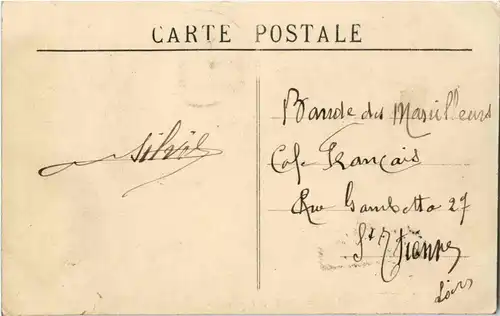 CARTE POSTALE
Silvis
Bande des Marseilleurs
Café Français
Rue Gambetta 27
St Etienne
Loire